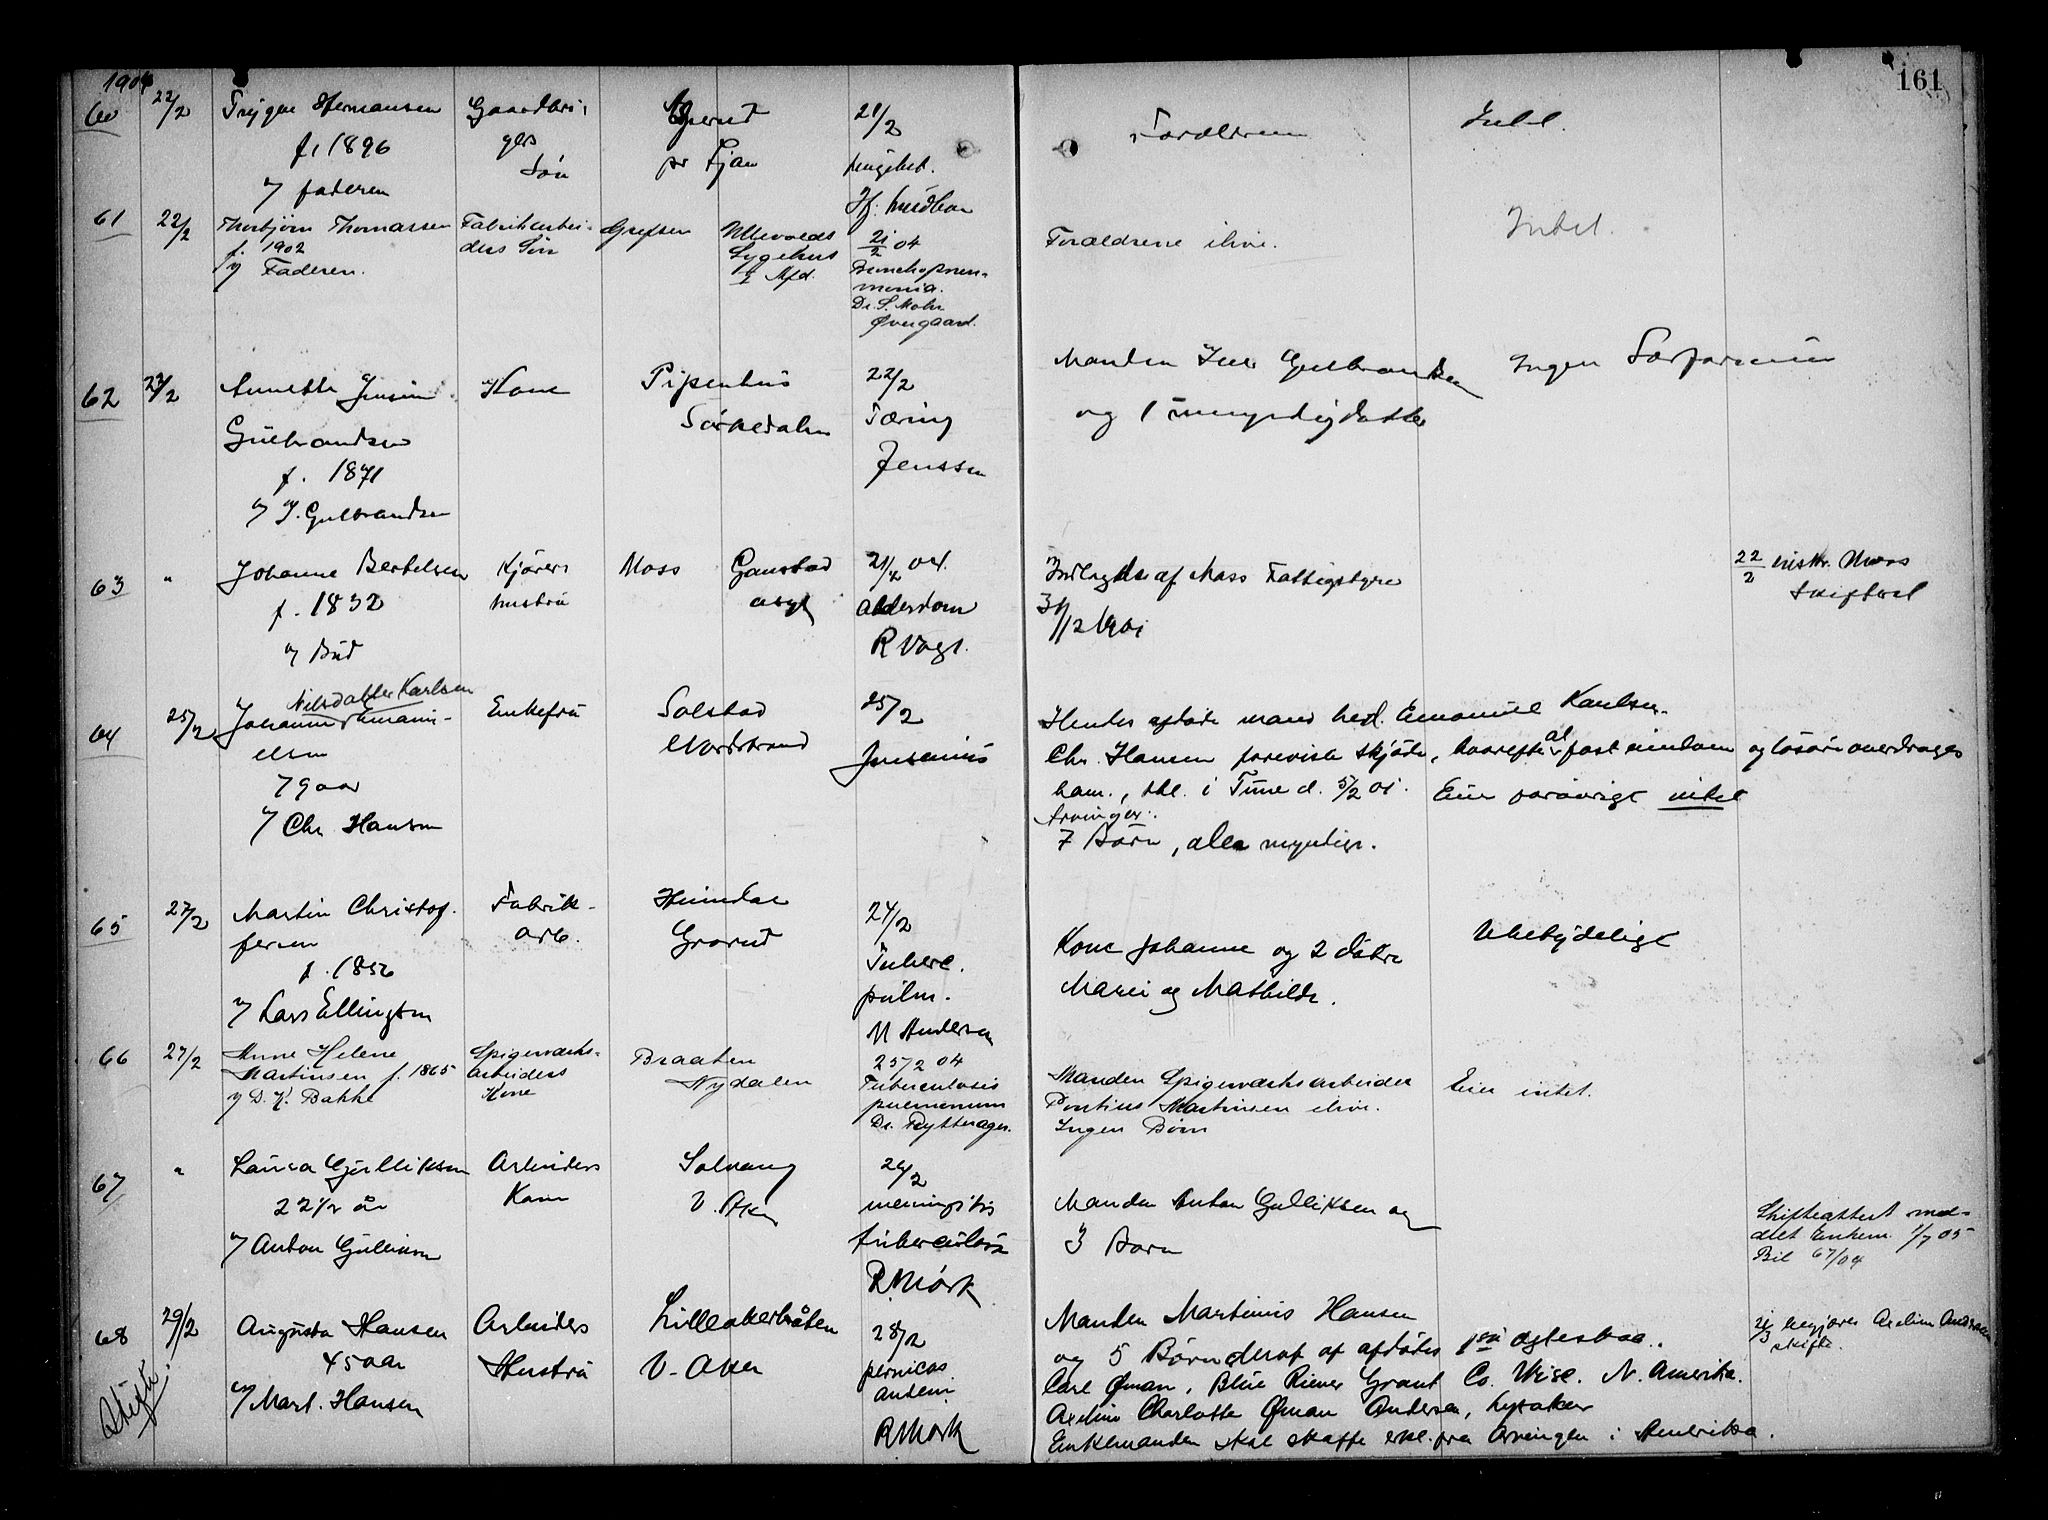 161
1904
60 22/2 Trygve Hermansen Gaardbru- 21/2 Forældrene Intet.
f. 1896 gers pr Ljan
v/ faderen Søn
61 22/2 Thorbjørn Thomassen Fabrikarbei- Grefsen Ullevaals 21/2 04 Forældrene ilive. Intet.
f. 1902 ders Søn Sygehus Bronchopneu-
v/ Faderen. Afd. monia.
Dr. S. Mohr
Øvergaard.
62 23/2 Annette Jensine Kone Pipenhus 22/2 Manden Iver Gulbrandsen Ingen Særformue
Gulbrandsen Sørkedalen Tæring og 1 umyndig datter
f. 1871 Jenssen
v/ I. Gulbrandsen
63 " Johanne Bertelsen Kjørers Moss Gaustad 21/2 Indlagt af Moss Fattigstyre 22/2 Moss
f. 1832 hustru asyl Alderdom 31/12 1901 Skifteret
v/ Bud R Vogt.
Nilsdatter Karlsen
64 25/2 Johanne Emanu- Enkefru Solstad 25/2 Hendes afdøde mand hed Emanuel Karlsen.
elsen Nordstrand Jusenius Chr. Hansen foreviste skjøde, hvorefter al fast eiendom og løsøre overdrages
79 aar ham, thl. i Tune d. 5/2 01. Eier forøvrigt intet
v/ Chr. Hansen Arvinger:
7 Børn, alle myndige.
65 27/2 Martin Christof- Fabrik- Heimdal 24/2 Kone Johanne og 2 døtre Ubetydeligt
fersen arb. Grorud Tuberc. Marie og Mathilde.
f. 1856 pulm.
v/ Lars Ellingsen N Andersen
66 27/2 Anne Helene Spigerværks- Braaten 25/2 04 Manden Spigerværksarbeider Eier intet.
Martinsen f. 1865 arbeiders Nydalen Tuberculosis Pontius Martinsen ilive.
v/ D. K. Bakke Kone pulmonum Ingen Børn
Dr. Rytterager.
67 " Laura Gulliksen Arbeiders Solvang 26/2 Manden Anton Gulliksen og Skifteattest med-
22 1/2 år Kone V. Aker meningitis 3 Børn delt Enkem. 1/7 05
v/ Anton Gulliksen tuberculosa Bil 67/04
R. Mørk
68 29/2 Augusta Hansen Arbeiders Lilleakerbråten 28/2 Manden Martinius Hansen begjærer Axeline Andersen
45 aar Hustru V. Aker pernicos og 5 Børn deraf af afdødes 1ste ægteskab. skifte.
v/ Mart. Hansen anæmi Carl Øman, Blue River Grant Co. Wisc. N. Amerika.
Skifte. R Mørk Axeline Charlotte Øman Andersen, Lysaker
Enkemanden skal skaffe erkl. fra Arvingen i Amerika.